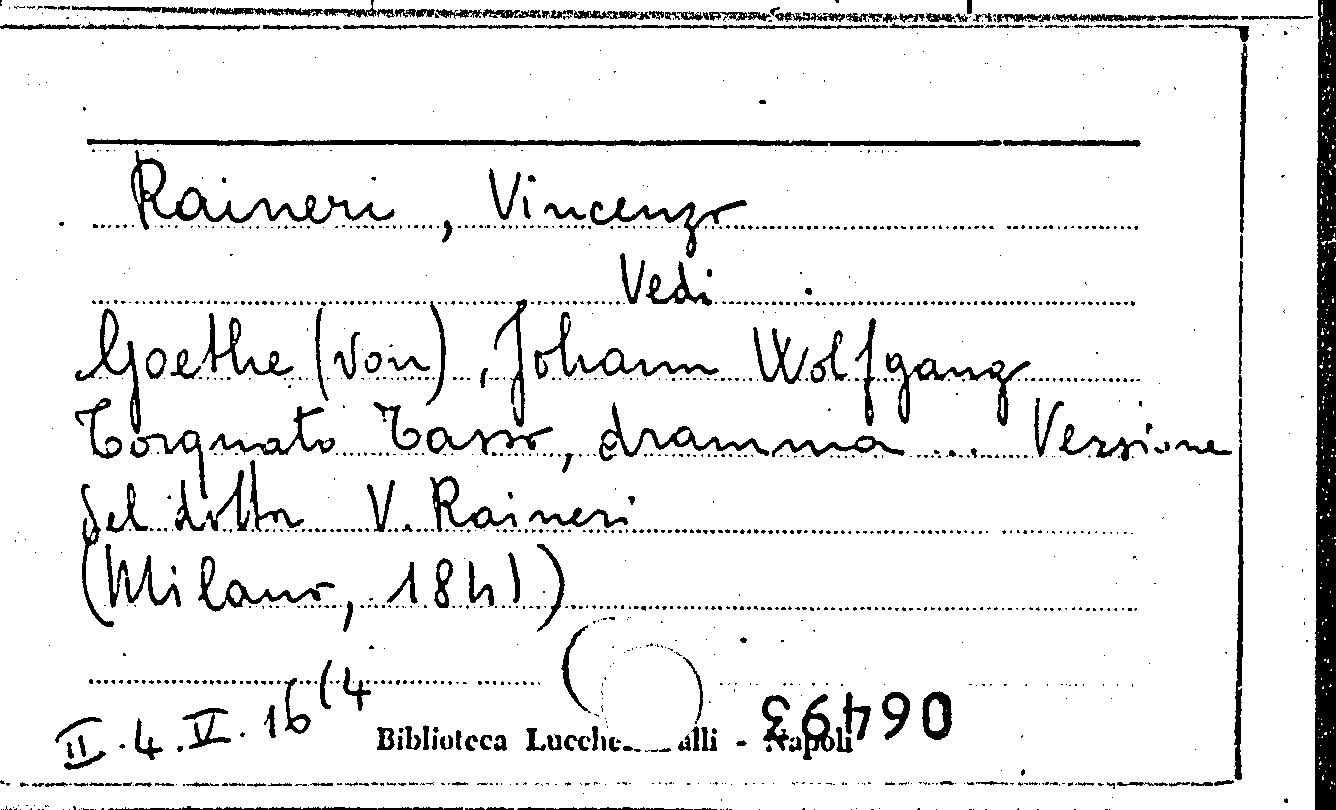 Raineri, Vincenzo
Vedi
Goethe (von), Johann Wolfgang
Torquato Tasso, dramma ... Versione
del dottor V. Raineri
(Milano, 1841)
II.4.V.16(4
Biblioteca Lucche alli - Napoli